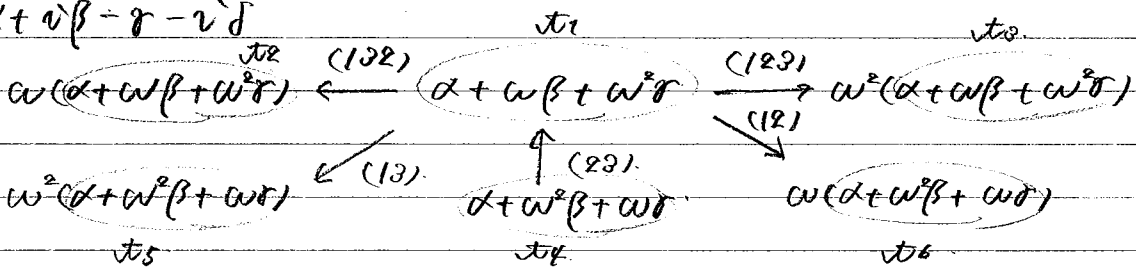 + iβ - γ - iδ
t1
t2 t3
ω(α+ωβ+ω²γ) ← (132) α+ωβ+ω²γ (123) → ω²(α+ωβ+ω²γ)
(12)
ω²(α+ω²β+ωγ) ↙ (13) ↑ (23) ω(α+ω²β+ωγ)
α+ω²β+ωγ
t5 t4 t6